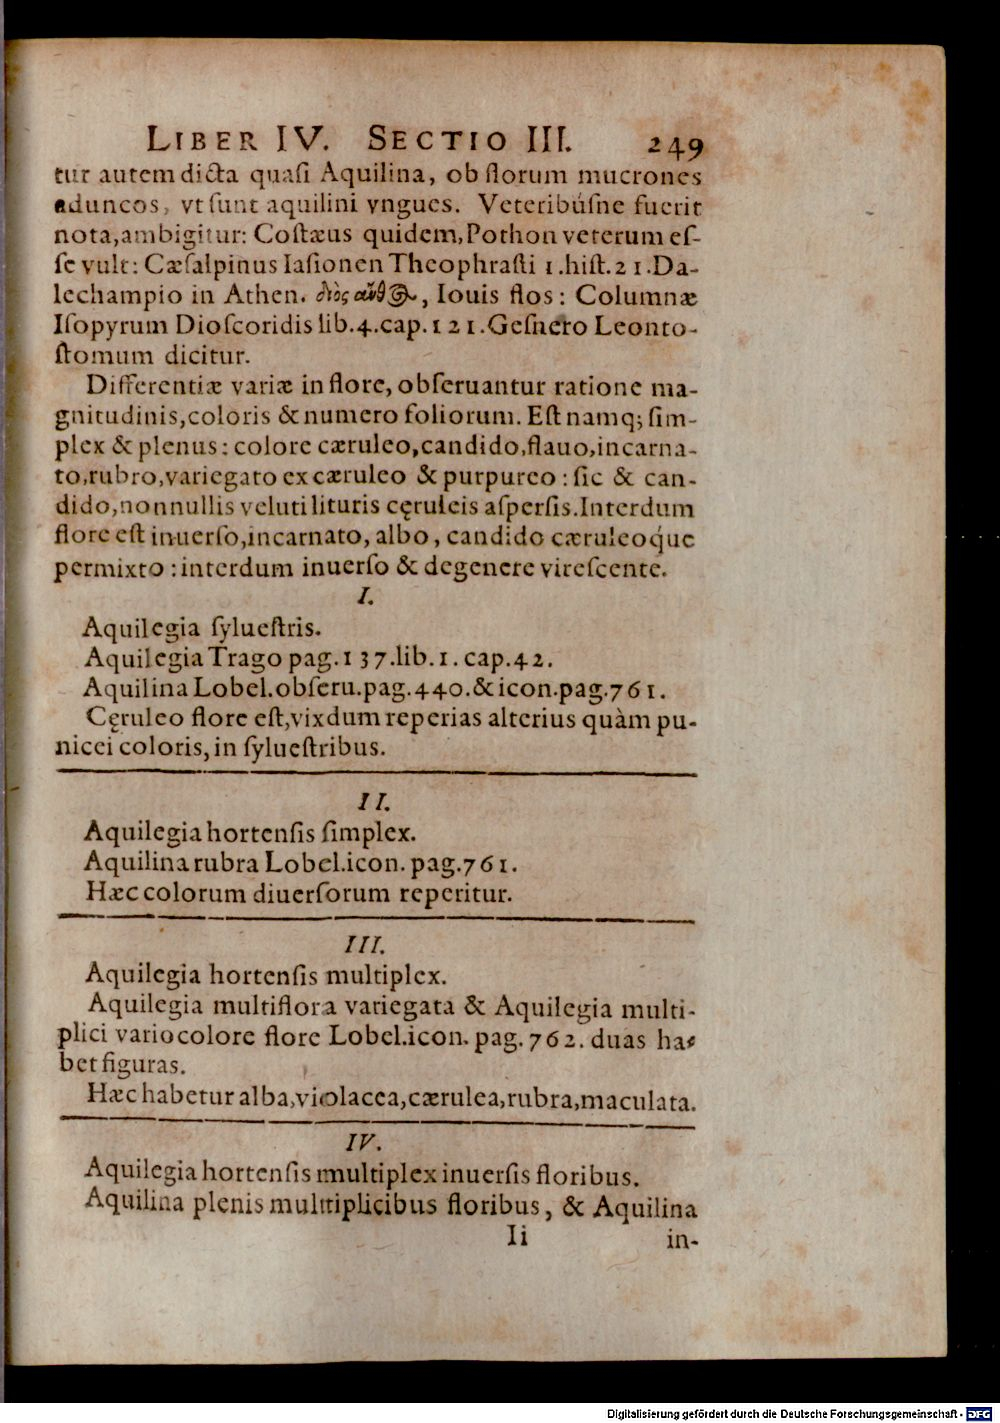 LIBER IV. SECTIO III. 249
tur autem dicta quaſi Aquilina, ob florum mucrones
aduncos, vt ſunt aquilini vngues. Veteribúſne fuerit
nota, ambigitur: Coſtæus quidem, Pothon veterum eſ-
ſe vult: Cæſalpinus Iaſionen Theophraſti 1. hiſt. 21. Da-
lechampio in Athen. διὸς ἄνθος, Iouis flos: Columnæ
Iſopyrum Dioſcoridis lib. 4. cap. 121. Geſnero Leonto-
ſtomum dicitur.
Differentiæ variæ in flore, obſeruantur ratione ma-
gnitudinis, coloris & numero foliorum. Eſt namq; ſim-
plex & plenus: colore cæruleo, candido, flauo, incarna-
to, rubro, variegato ex cæruleo & purpureo: ſic & can-
dido, nonnullis veluti lituris cęruleis aſperſis. Interdum
flore eſt inuerſo, incarnato, albo, candido cæruleoq́ue
permixto: interdum inuerſo & degenere vireſcente.
I.
Aquilegia ſylueſtris.
Aquilegia Trago pag. 137. lib. 1. cap. 42.
Aquilina Lobel. obſeru. pag. 440. & icon. pag. 761.
Cęruleo flore eſt, vixdum reperias alterius quàm pu-
nicei coloris, in ſylueſtribus.
II.
Aquilegia hortenſis ſimplex.
Aquilina rubra Lobel. icon. pag. 761.
Hæc colorum diuerſorum reperitur.
III.
Aquilegia hortenſis multiplex.
Aquilegia multiflora variegata & Aquilegia multi-
plici vario colore flore Lobel. icon. pag. 762. duas ha-
bet figuras.
Hæc habetur alba, violacea, cærulea, rubra, maculata.
IV.
Aquilegia hortenſis multiplex inuerſis floribus.
Aquilina plenis multiplicibus floribus, & Aquilina
Ii in-
Digitalisierung gefördert durch die Deutsche Forschungsgemeinschaft - DFG